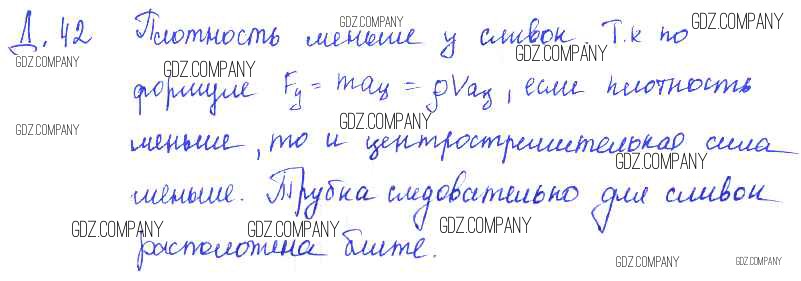 Д. 42 Плотность меньше у сливок. Т.к по
формуле Fц = maц = ρVaц, если плотность
меньше, то и центростремительная сила
меньше. Трубка следовательно для сливок
расположена ближе.
GDZ.COMPANY
GDZ.COMPANY
GDZ.COMPANY
GDZ.COMPANY
GDZ.COMPANY
GDZ.COMPANY
GDZ.COMPANY
GDZ.COMPANY
GDZ.COMPANY
GDZ.COMPANY
GDZ.COMPANY
GDZ.COMPANY
GDZ.COMPANY
GDZ.COMPANY